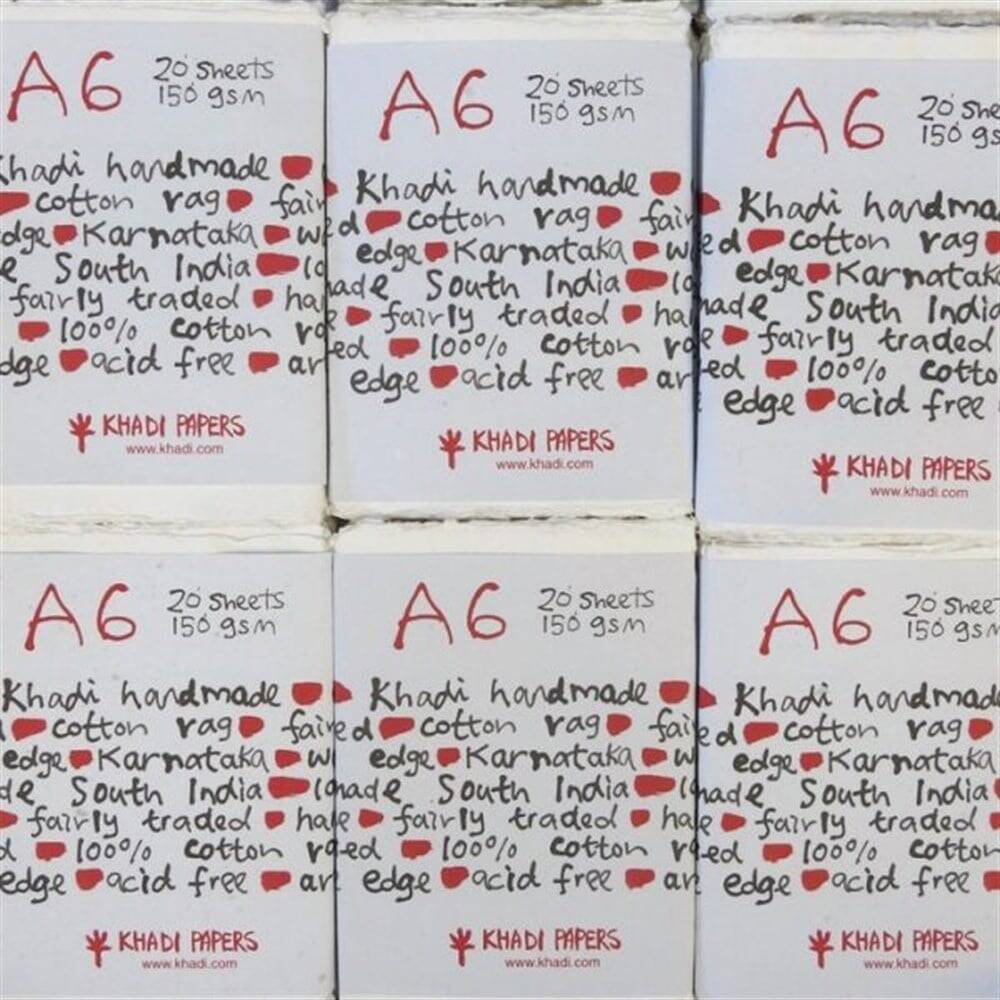 A6 20 sheets
150 gsm
Khadi handmade
cotton rag fair
edge Karnataka w
South India
fairly traded ha
100% cotton
edge acid free ar
KHADI PAPERS
www.khadi.com
A6 20 sheets
150 gsm
Khadi handmade
ed cotton rag fair
edge Karnataka w
made South India
fairly traded ha
ed 100% cotton
edge acid free ar
KHADI PAPERS
www.khadi.com
A6 20 she
150 gs
Khadi handma
ed cotton rag
edge Karnatak
made South India
fairly traded
ed 100% cotto
edge acid free
KHADI PAPERS
www.khadi.com
A6 20 sheets
150 gsm
Khadi handmade
cotton rag fair
edge Karnataka w
de South India
fairly traded ha
100% cotton
edge acid free ar
KHADI PAPERS
www.khadi.com
A6 20 sheets
150 gsm
Khadi handmade
ed cotton rag fair
edge Karnataka w
made South India
fairly traded ha
ed 100% cotton
edge acid free ar
KHADI PAPERS
www.khadi.com
A6 20 sheet
150 gsm
Khadi handmad
ed cotton rag
edge Karnataka
made South India
fairly traded
ed 100% cotton
edge acid free
KHADI PAPERS
www.khadi.com